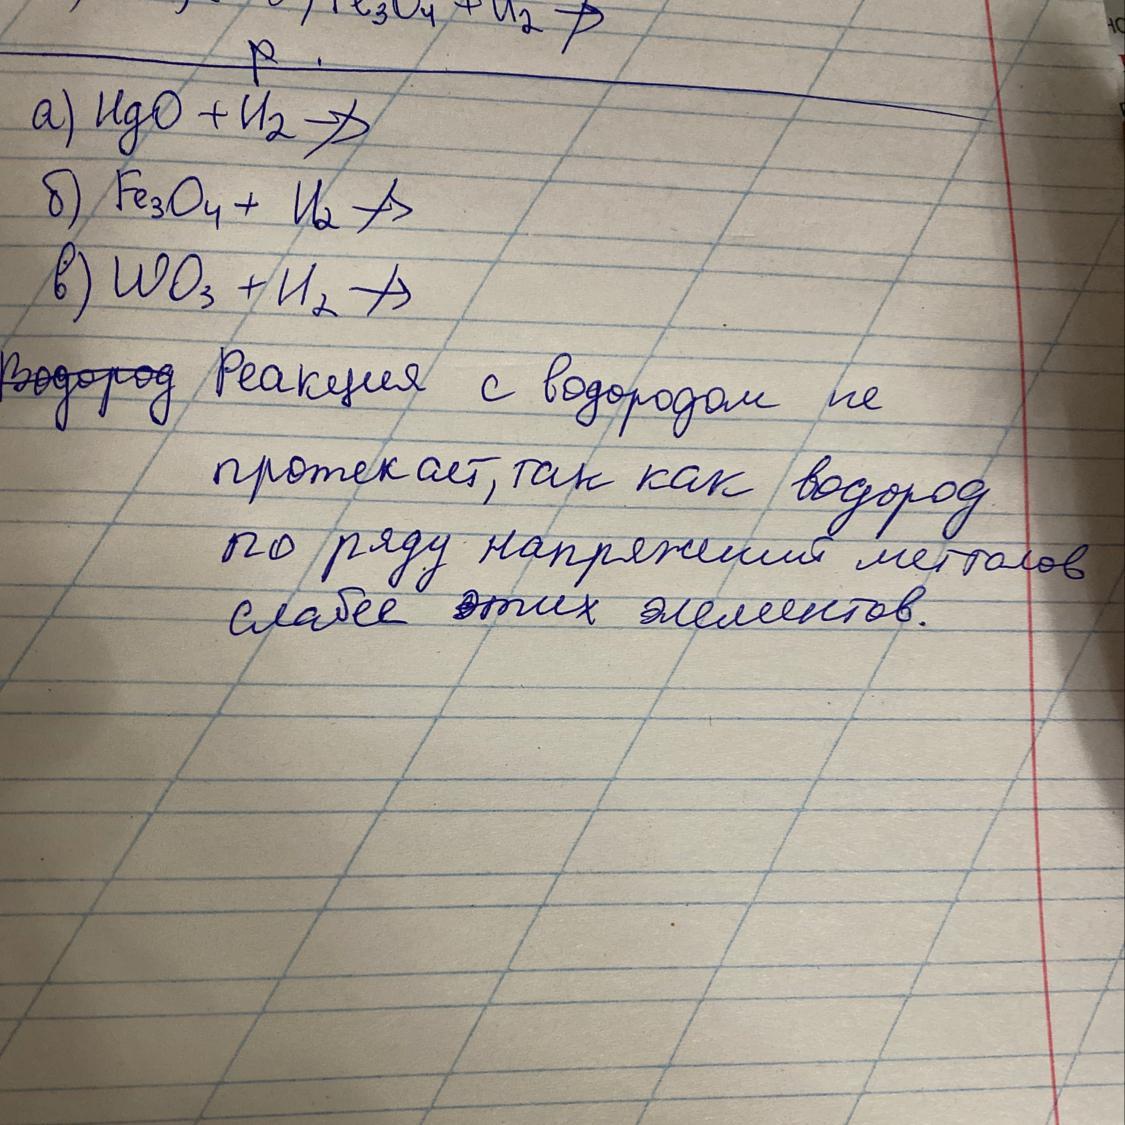 Fe₃O₄ + H₂ ↛
Р.
а) HgO + H₂ ↛
б) Fe₃O₄ + H₂ ↛
в) WO₃ + H₂ ↛
Водород Реакция с водородом не
протекает, так как водород
по ряду напряжений металов
слабее этих элементов.